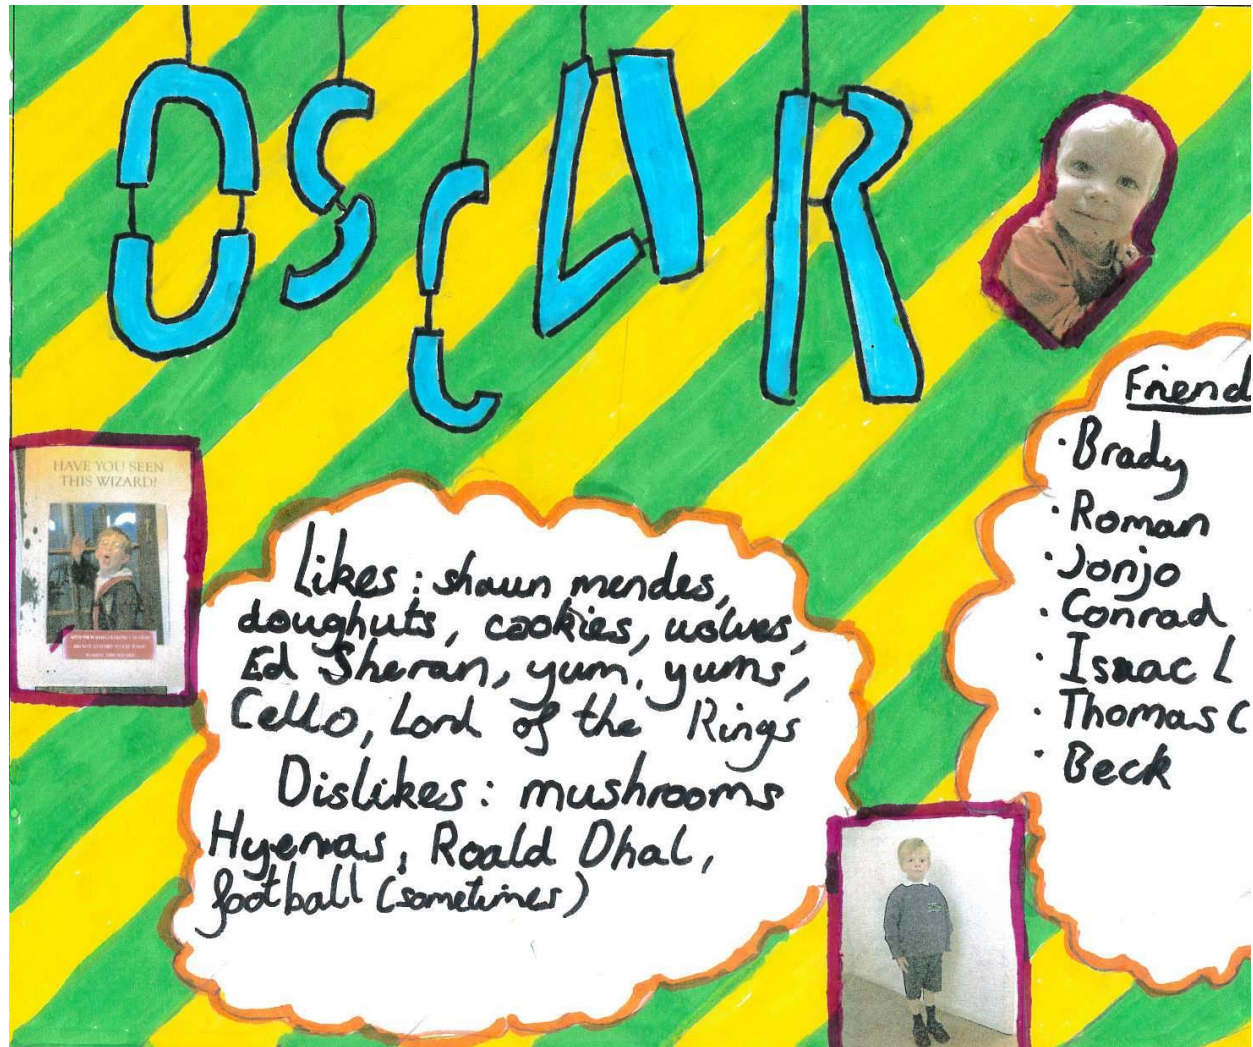 OSCAR
HAVE YOU SEEN
THIS WIZARD?
likes : shawn mendes,
doughuts, cookies, wolves,
Ed Sheran, yum, yums,
Cello, Lord of the Rings
Dislikes : mushrooms
Hyenas, Roald Dhal,
football (sometimes)
Friend
· Brady
· Roman
· Jonjo
· Conrad
· Isaac L
· Thomas C
· Beck